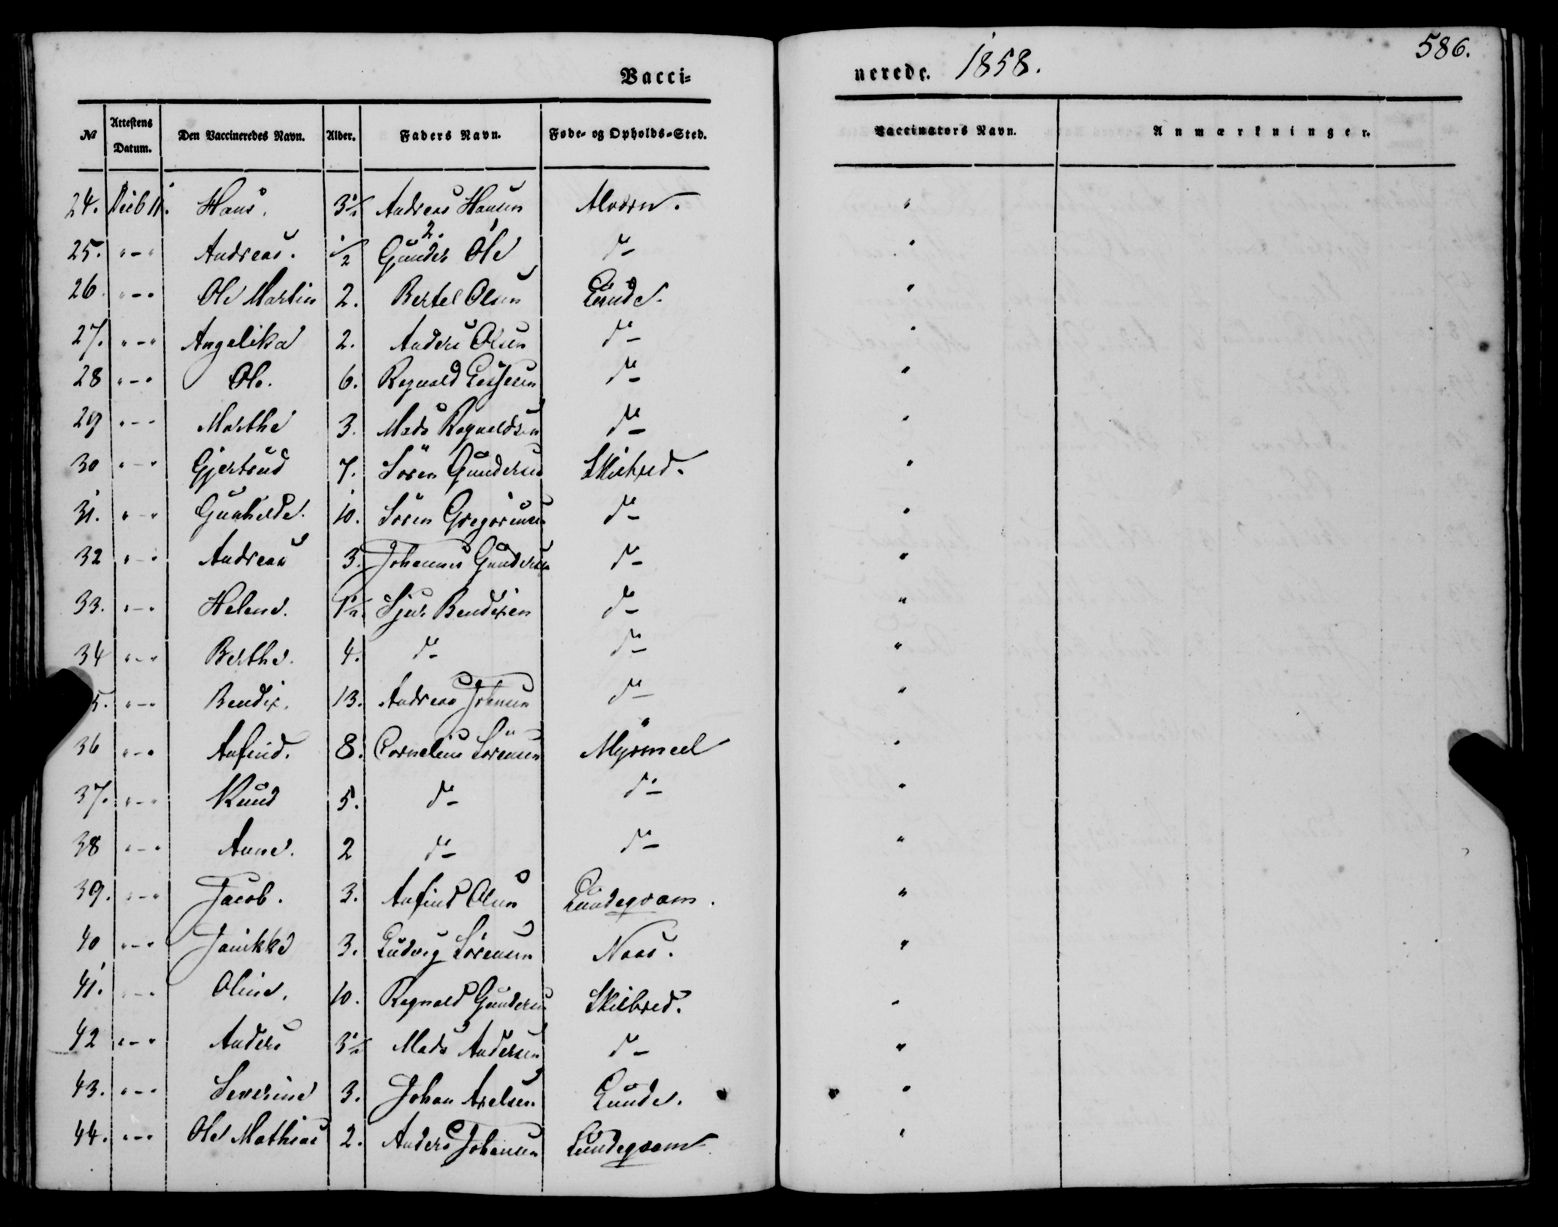 586.
Vacci= nerede. 1858.
№ Attestens Datum. Den Vaccineredes Navn. Alder. Faders Navn. Føde- og Opholds-Sted. Vaccinators Navn. Anmærkninger.
24. Hans. 3½ Andreas Hansen "
25. " - " Andreas. ½ Gunder Ols 2. d- "
26 " - " Ole Martin 2. Bertel Olsen Lunde. "
27. " - " Angelika 2. Anders Olsen d- "
28 " - " Ole. 6. Regnald d- "
29 " - " Marthe 3. Mads Regnaldsen d- "
30 " - " Gjertrud 7. Sören Gundersen Skilbred. "
31. " - " Gunhilde. 10. Sören Gregoriusen d- "
32 " - " Andreas 3. Johannes Gundersen d- "
33. " - " Helene. 1½. Sjur Bendixen d- "
34 " - " Berthe. 4. d- d- "
5. " - " Bendix. 13. Andreas Johnsen d- "
36 " - " Anfind. 8. Cornelius Sörensen Myrmeel "
37. " - " Knud 5. d- d- "
38 " - " Anne. 2 d- d- "
39. " - " Jacob. 3. Anfind Olsen Lundegram. "
40 " - " Janikke 3. Ludvig Sörensen Naas. "
41. " - " Oline. 10. Regnald Gundersen Skilbred. "
42 " - " Anders 3½ Mads Andersen d- "
43. " - " Severine 3. Johan Axelsen Lunde. "
44. " - " Ole Mathias 2. Anders Johansen Lundegram "